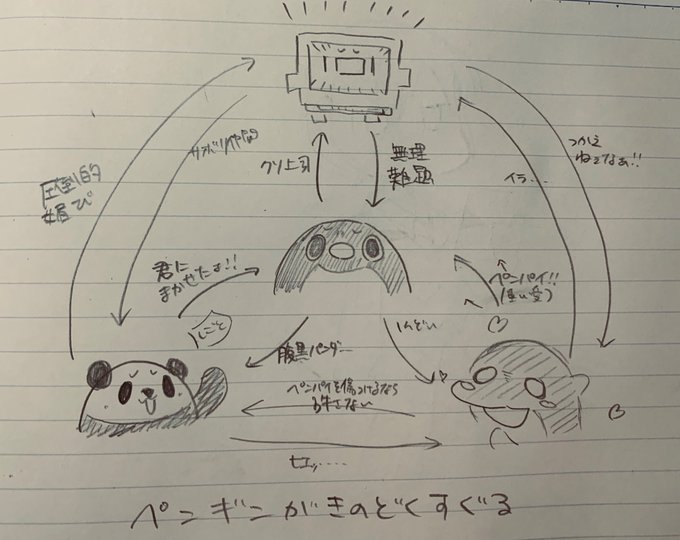 圧倒的
媚び
サボリやがって
クソ上司
無理
難題
つかえ
ねぇなぁ!!
イラ...
君に
まかせたよ!!
しごと
ペンパイ!!
(重い愛)
腹黒パンダー
しんどい
ペンパイを傷つけるなら
許さない
ペンギンがきのどくすぐる